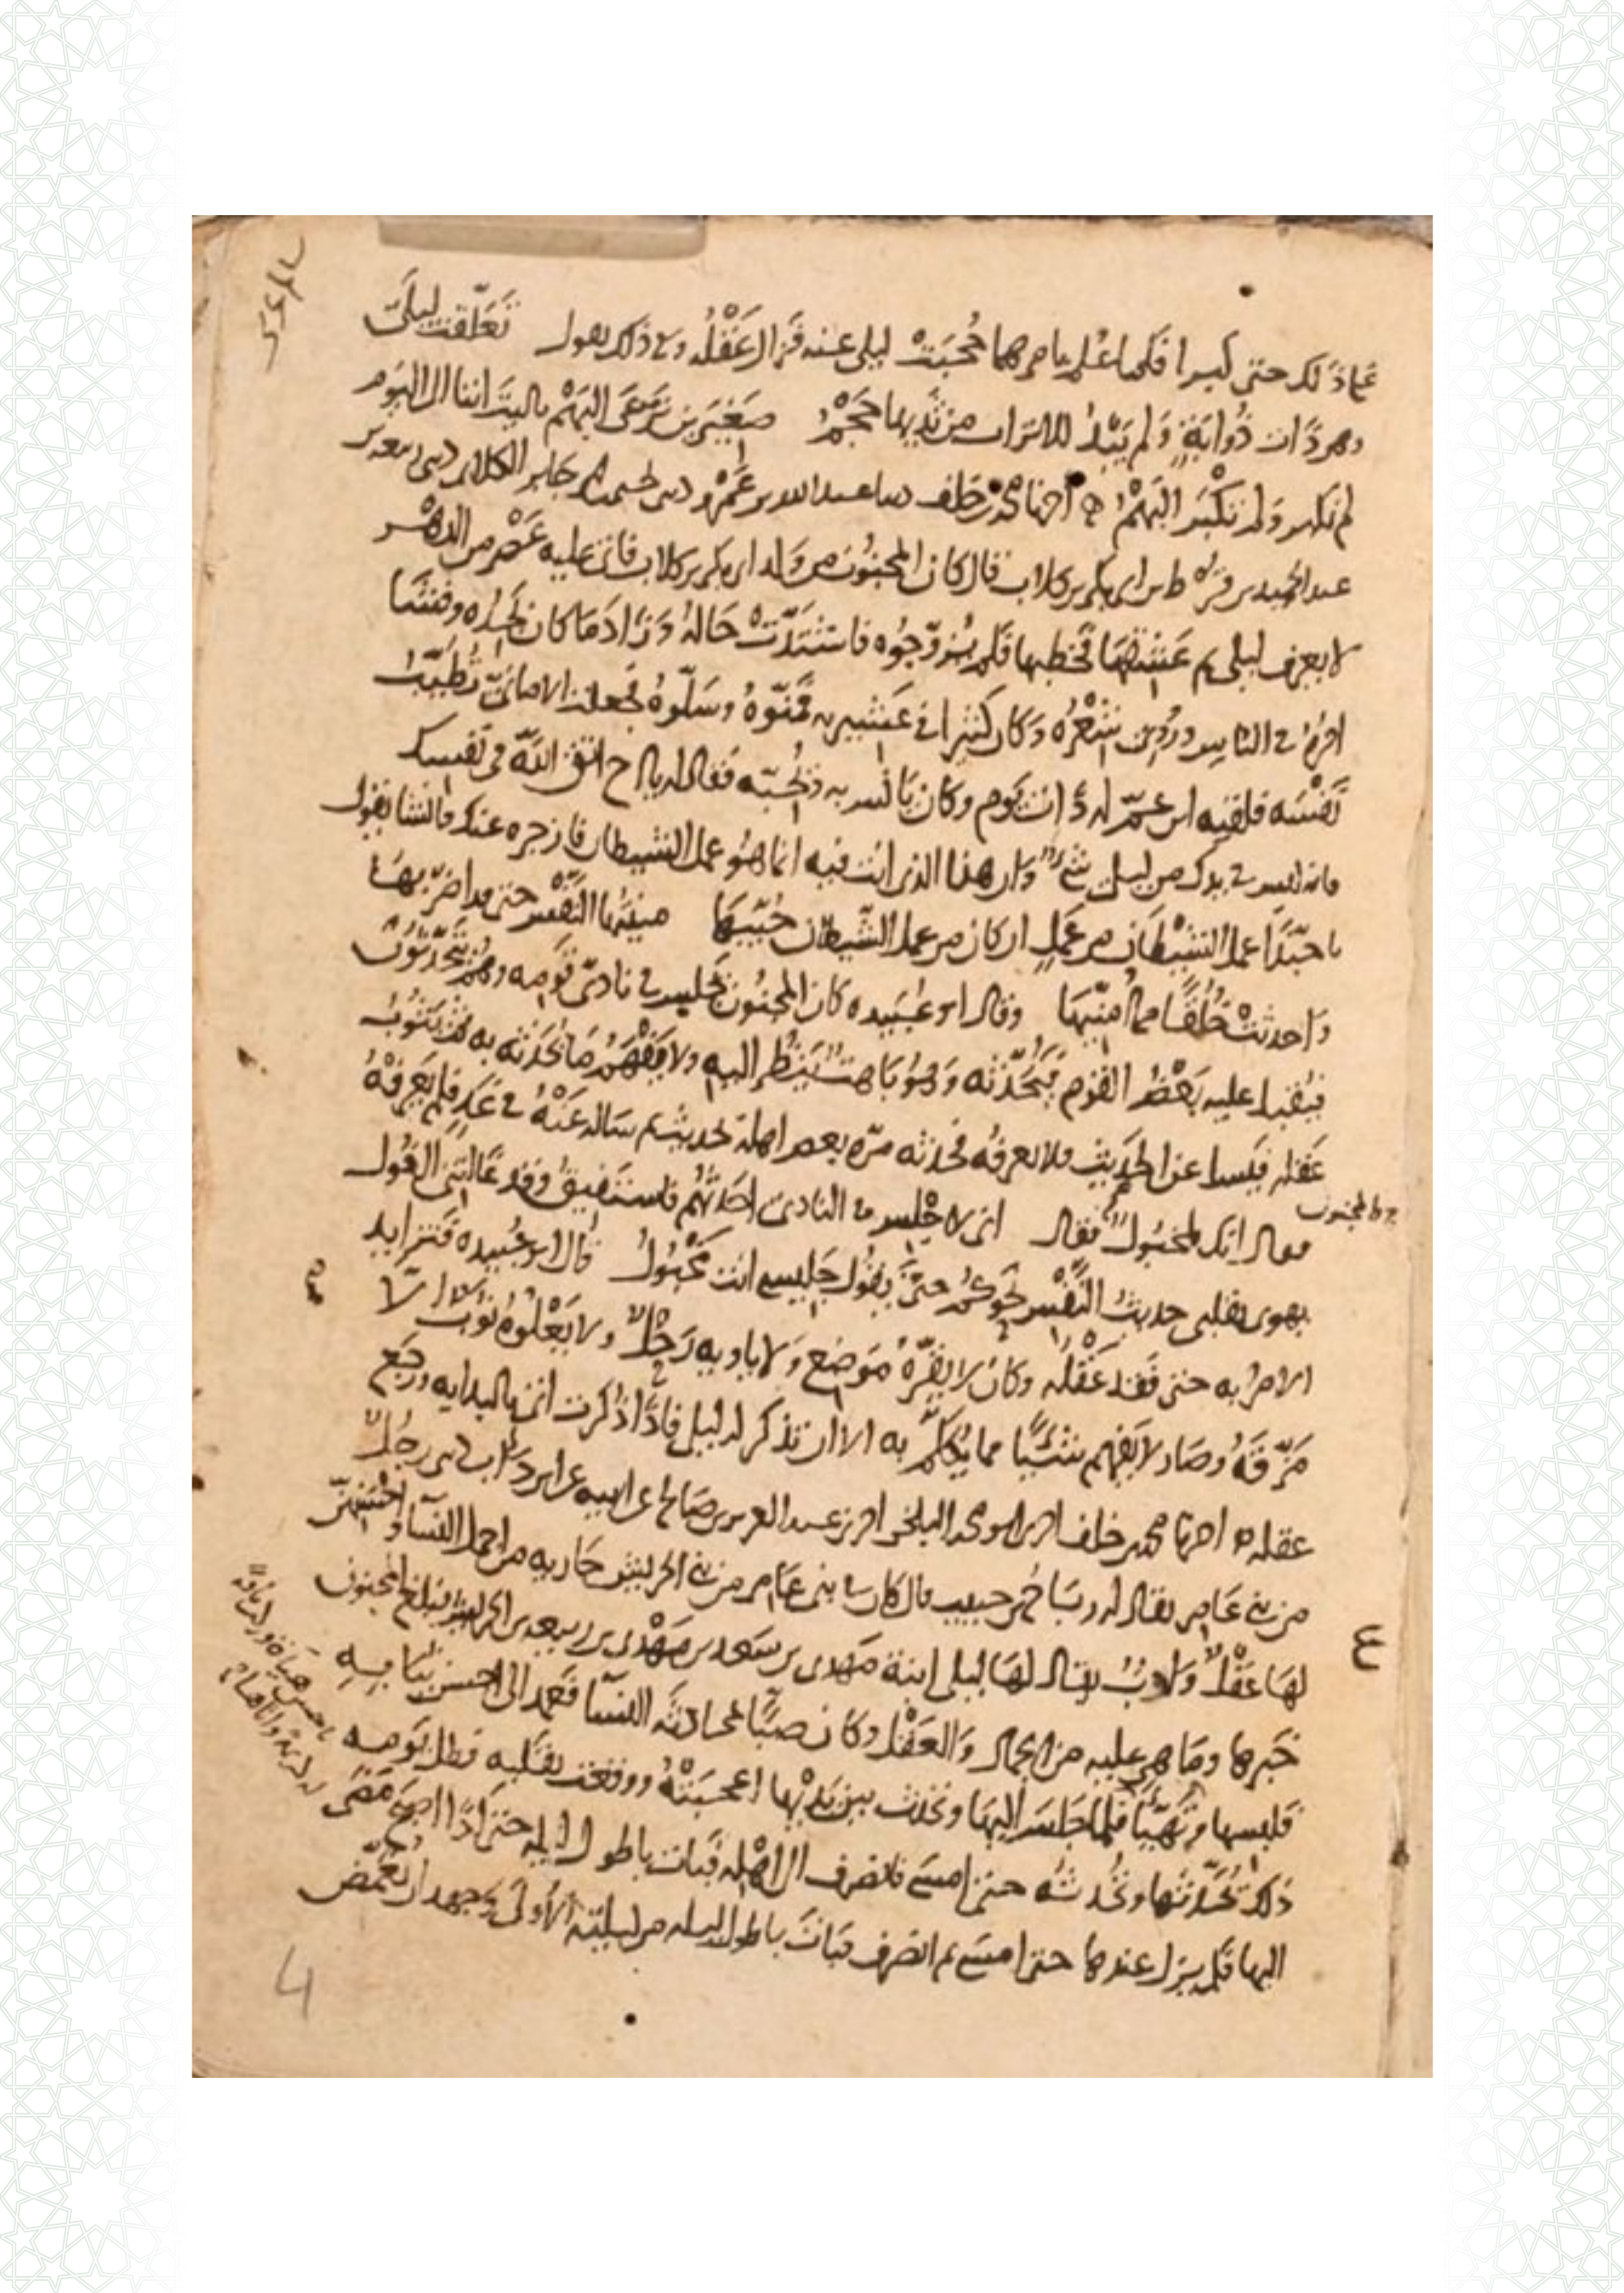 على ذلك حتى كبرا فلما علم بامرهما حُجبَتْ ليلى عنه فزال عَقْلُه وفي ذلك يقول تَعلّقت ليلَى
وهى ذات ذُوابَةٍ وَلم يَبْدُ للاتراب من ثديها حَجْمُ صَغيرين نَرعَى البَهْم ياليتَ اننا الى اليوم
لم نكبر وَلم تكْبَر البَهْمُ اخبرنا محمد بن خلف عبد الله بن عَمْرو جابر الكلابى
عبد الحميد من ابى بكر بن كلاب قال كان المجنُون من وَلد ابى بكر بن كلاب فاتى عليه عَصْر من الدهْر
لا يعرف ليلى ثم عَشقهَا فخطبها فلم يُزوّجُوه فاشتدَّتْ حَالهُ وَزادَ مَا كان يَجدُه وفشَا
امْرهُ فى الناس ورُوى شعْرُه وَكان كثيرا فى عَشيرته فمَنّوهُ وسَلّوهُ فجعلت الامانىّ تُطيّبُ
نَفْسَه فلقيه ابن عمّ له ذات يَوم وكان يَانس به فقال له يا اخ اتق اللّه فى نفسك
فانه ليس فى يدك من ليلى شىء وَان هذا الذى انت فيه انما هُو عمل الشيطان فازجره عنك فانشا يقول
يا حبّذا عمل الشيْطَان من عَملٍ ان كان من عمل الشيطان حُبّيهَا منيتهَا النَفْس حتى قد اضرّ بهَا
وَاحدثتْ خُلُفًا مما اُمنّيهَا وقال ابو عُبَيده كان المجنُون يَجلس فى نادى قَومه وهُم يَتَحَدّثُونَ
فيُقبل عليه بَعْضُ القوم فيُحَدّثه وَهوُ بَاهتٌ يَنظُر اليه ولا يَفْهَمُ مَا يُحَدثه به ثم يَثُوبُ
عَقله فيُسال عن الحَديث فلا يعرفُه فحدثه مرّه بعض اهله بحديث ثم ساله عَنْهُ فى غَدٍ فلم يَعرفْهُ
فقال انك لمخبُول فقال انى لاجْلس فى النادى اُحَدّثهُم فاستَفيقُ وقد غَالتنى الغُول
يهوى بقلبى حديثُ النَفْس نحوكُمُ حتّى يقُول جَليسى انت مخْبُولُ قال ابو عُبيده فتزايد
الامر به حتى فقد عَقْلُه وكَان لا يقرّهُ مَوضعٌ وَلا ياويه رَحْلٌ ولا يَعْلُوهُ ثوبٌ الا
مَزّقهُ وصَار لا يَفهم شيئا مما يُكلّم به الا ان تذكر له ليلى فاذا ذُكرت اتى بالبدايه ورجَع
عقله اخبرنا محمد بن خلف ابو محمد البلخى عبد العزيز بن صَالح عن ابيه عن ابن دَأب رجُل
من بنى عَامر يقال له ربَاحُ بن حبيب قال كان فى بنى عَامر من بنى الحريش جَاريه من اجمل النسآ واحْسَنهنّ
لهَا عَقْلٌ وَادبٌ يقال لهَا ليلى ابنة مَهدى بن سَعد بن مَهْدى بن ربيعه بن الحريش فبلغ المجنون
خَبرها ومَا هى عليه من الجمال وَالعَقْل وكان صبّا بمحادثة النسآ فعَمد الى احسن ثيَابه
فلبسها وتهَيّأ فلما جَلسَ اليهَا وتحدث بين يدَيْهَا اعجبَتْهُ ووقعت بقَلبه فظل يَومه
ذلك يُحَدّثهَا وتُحَدّثهُ حتى امسَى فانصرف الى اهْله فَبات باطول ليله حتى اذا اصبحَ مَضَى
اليها فلم يزل عندها حتى امسَى ثم انصرف فبَات باطول ليله من ليلته الاُولى وَجهد ان يُغمّض
المجنون
ع
4